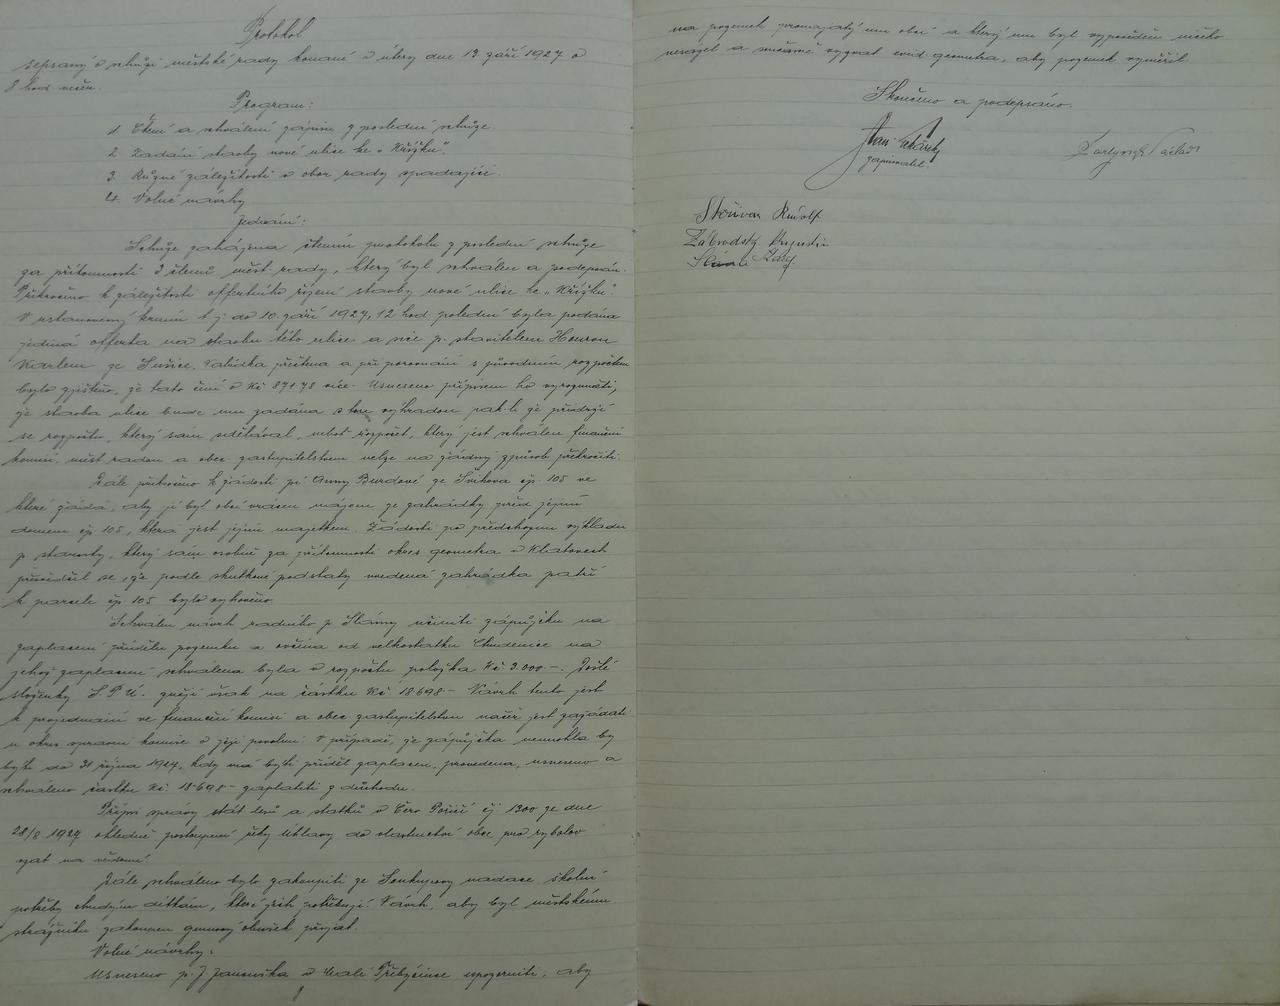 Protokol
sepsaný o schůzi městské rady konané v úterý dne 13 září 1927 o
8 hod. večer.
Program:
1. Čtení a schválení zápisu z poslední schůze.
2. Zadání stavby nové ulice ke „Křížku“.
3. Různé záležitosti v obor rady spadající.
4. Volné návrhy
Jednání:
Schůze zahájena čtením protokolu z poslední schůze
za přítomnosti 3 členů měst. rady, který byl schválen a podepsán.
Přikročeno k záležitosti offertního řízení stavby nové ulice ke „Křížku“.
V ustanoveném termínu t. j. do 10. září 1927, 12 hod polední byla podána
jediná offerta na stavbu této ulice a sice p. stavitelem
Karlem ze Sušice. Nabídka přečtena a při porovnání s původním rozpočtem
bylo zjištěno, že tato činí o Kč 871·78 více. Usneseno přípisem ho vyrozuměti,
že stavba ulice bude mu zadána s tou výhradou pak-li že přidrží
se rozpočtu, který sám sdělával, neboť rozpočet, který jest schválen finanční
komisí, měst radou a obec. zastupitelstvem nelze na žádný způsob překročiti.
Dále přikročeno k žádosti pí Anny Burdové ze Švihova čp. 105 ve
které žádá, aby jí byl obcí vrácen nájem ze zahrádky před jejím
domem čp 105, která jest jejím majetkem. Žádosti po předchozím výkladu
p starosty, který sám osobně za přítomnosti okres geometra v Klatovech
přesvědčil se, že podle skutkové podstaty uvedená zahrádka patří
k parcele čp 105 bylo vyhověno.
Schválen návrh radního p Slámy učiniti zápůjčku na
zaplacení přídělu pozemku a ovčína od velkostatku Chudenice na
jehož zaplacení schválena byla v rozpočtu položka Kč 3.000–. Došlé
složenky S.P.Ú. znějí však na částku Kč 18·698– Návrh tento jest
k projednání ve finanční komisi a obec zastupitelstvu načež jest zažádati
u okres správní komise o její povolení. V případě, že zápůjčka nemohla by
býti do 31 října 1927, kdy má býti příděl zaplacen, provedena, usneseno a
schváleno částku Kč 18·698– zaplatiti z důchodu.
Přípis správy stát lesů a statků v Červ Poříčí čj. 1300 ze dne
28/8 1927 ohledně postoupení řeky Úhlavy do vlastnictví obce pro rybolov
vzat na vědomí.
Dále schváleno bylo zakoupiti ze Soukupovy nadace školní
potřeby chudým dítkám, které jich potřebují. Návrh, aby byl městskému
strážníku zakoupen gumový obušek přijat.
Volné návrhy:
Usneseno p. J. Janouška v Malé upozorniti, aby
na pozemek pronajatý mu obcí a který mu byl vypovězen ničeho
nesázel a současně vyzvat evid. geometra, aby pozemek vyměřil
Skončeno a podepsáno.
zapisovatel
Rudolf
Zábrodský Augustin